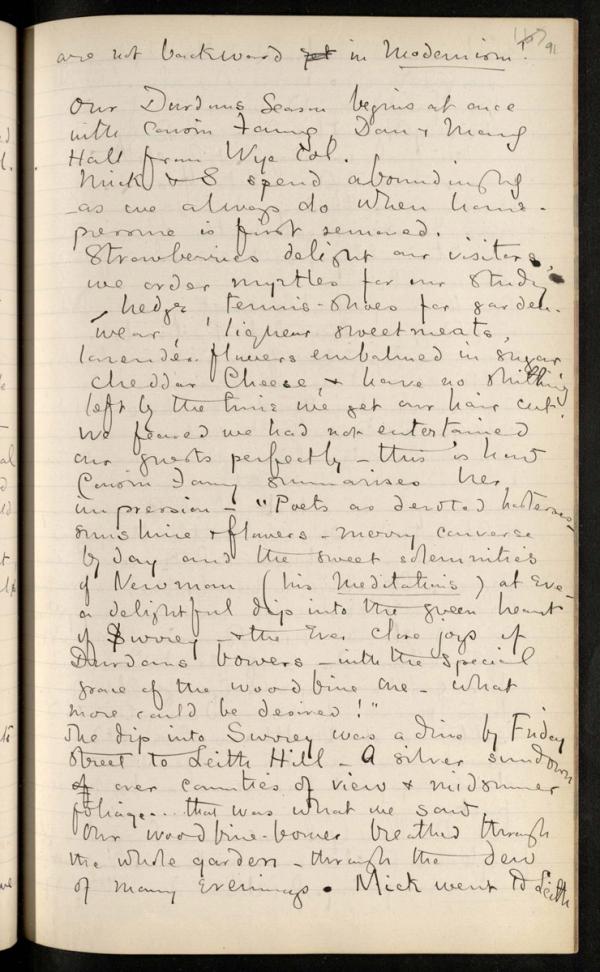 are not backward yet in Modernism.
91
Our Durdans Season begins at once
with Cousin Fanny, Dan & Mary
Hall from Wye Col.
Mick & S spend aboundingly
as we always do when home-
is first
Strawberries delight our visitors,
we order myrtles for our study
hedge, tennis-shoes for garden-
wear, liqueur sweetmeats,
lavender flowers embalmed in sugar
Cheddar Cheese, & have no shilling
left by the time we get our hair cut.
We feared we had not entertained
our guests perfectly – this is how
Cousin Fanny summarises her
impression – "Poets as devoted hostesses –
sunshine & flowers – merry converse
by day and the sweet solemnities
of Newman (his Meditations) at Eve –
a delightful dip into the green heart
of Surrey – & the ever close joys of
Durdans bowers – with the special
grace of the woodbine one – what
more could be desired!"
The dip into Surrey was a drive by Friday
Street to Leith Hill – A silver sundown
over counties of view & midsummer
foliage .. that was what we saw
Our woodbine-bower breathed through
the whole garden – through the dew
of many Evenings. Mick went to Leith